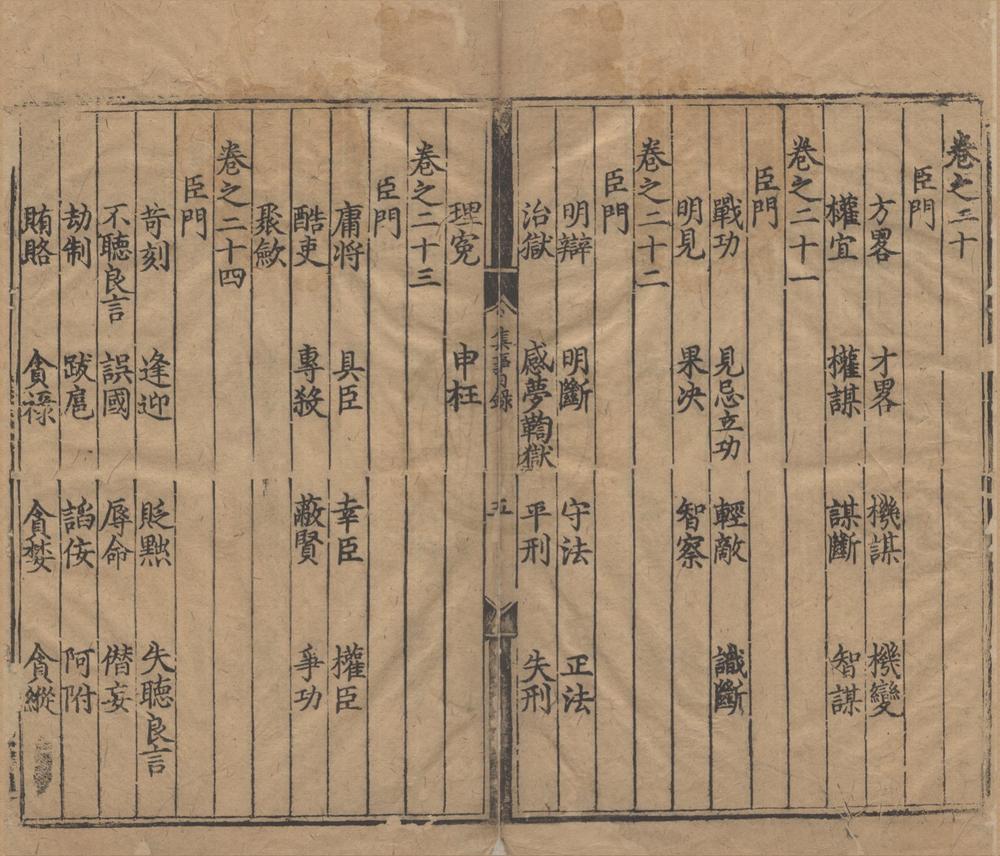 卷之二十
臣門
方畧 才畧 機謀 機變
權宜 權謀 謀斷 智謀
卷之二十一
臣門
戰功 見忌立功 輕敵 識斷
明見 果决 智察
卷之二十二
臣門
明辯 明斷 守法 正法
治獄 感夢鞫獄 平刑 失刑
集事目錄 五
理冤 申枉
卷之二十三
臣門
庸将 具臣 幸臣 權臣
酷吏 專殺 蔽賢 爭功
聚歛
卷之二十四
臣門
苛刻 逢迎 貶黜 失聴良言
不聴良言 誤國 辱命 僣妄
劫制 跋扈 謟佞 阿附
賄賂 貪祿 貪婪 貪縱